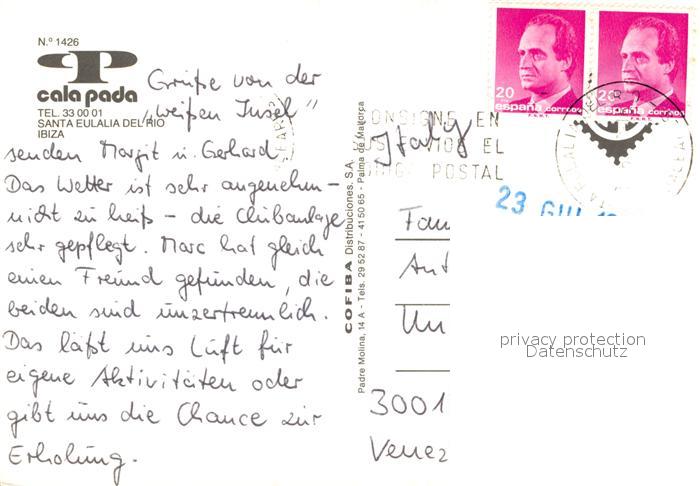 N.º 1426
cala pada
TEL. 33 00 01
SANTA EULALIA DEL RIO
IBIZA
Grüße von der
"weißen Insel"
senden Margit u. Gerhard.
Das Wetter ist sehr angenehm –
nicht zu heiß – die Clubanlage
sehr gepflegt. Marc hat gleich
einen Freund gefunden, die
beiden sind unzertrennlich.
Das läßt uns Luft für
eigene Aktivitäten oder
gibt uns die Chance zur
Erholung.
COFIBA Distribuciones, S.A.
Padre Molina, 14 A - Tels. 29 52 87 - 41 50 65 - Palma de Mallorca
20
españa correos
F.N.M.T.
20
españa correos
F.N.M.T.
CONSIGNE EN
SUS ENVIOS EL
CODIGO POSTAL
23 GIU
Italy
Fam
Ant
Un
3001
Venez
privacy protection
Datenschutz